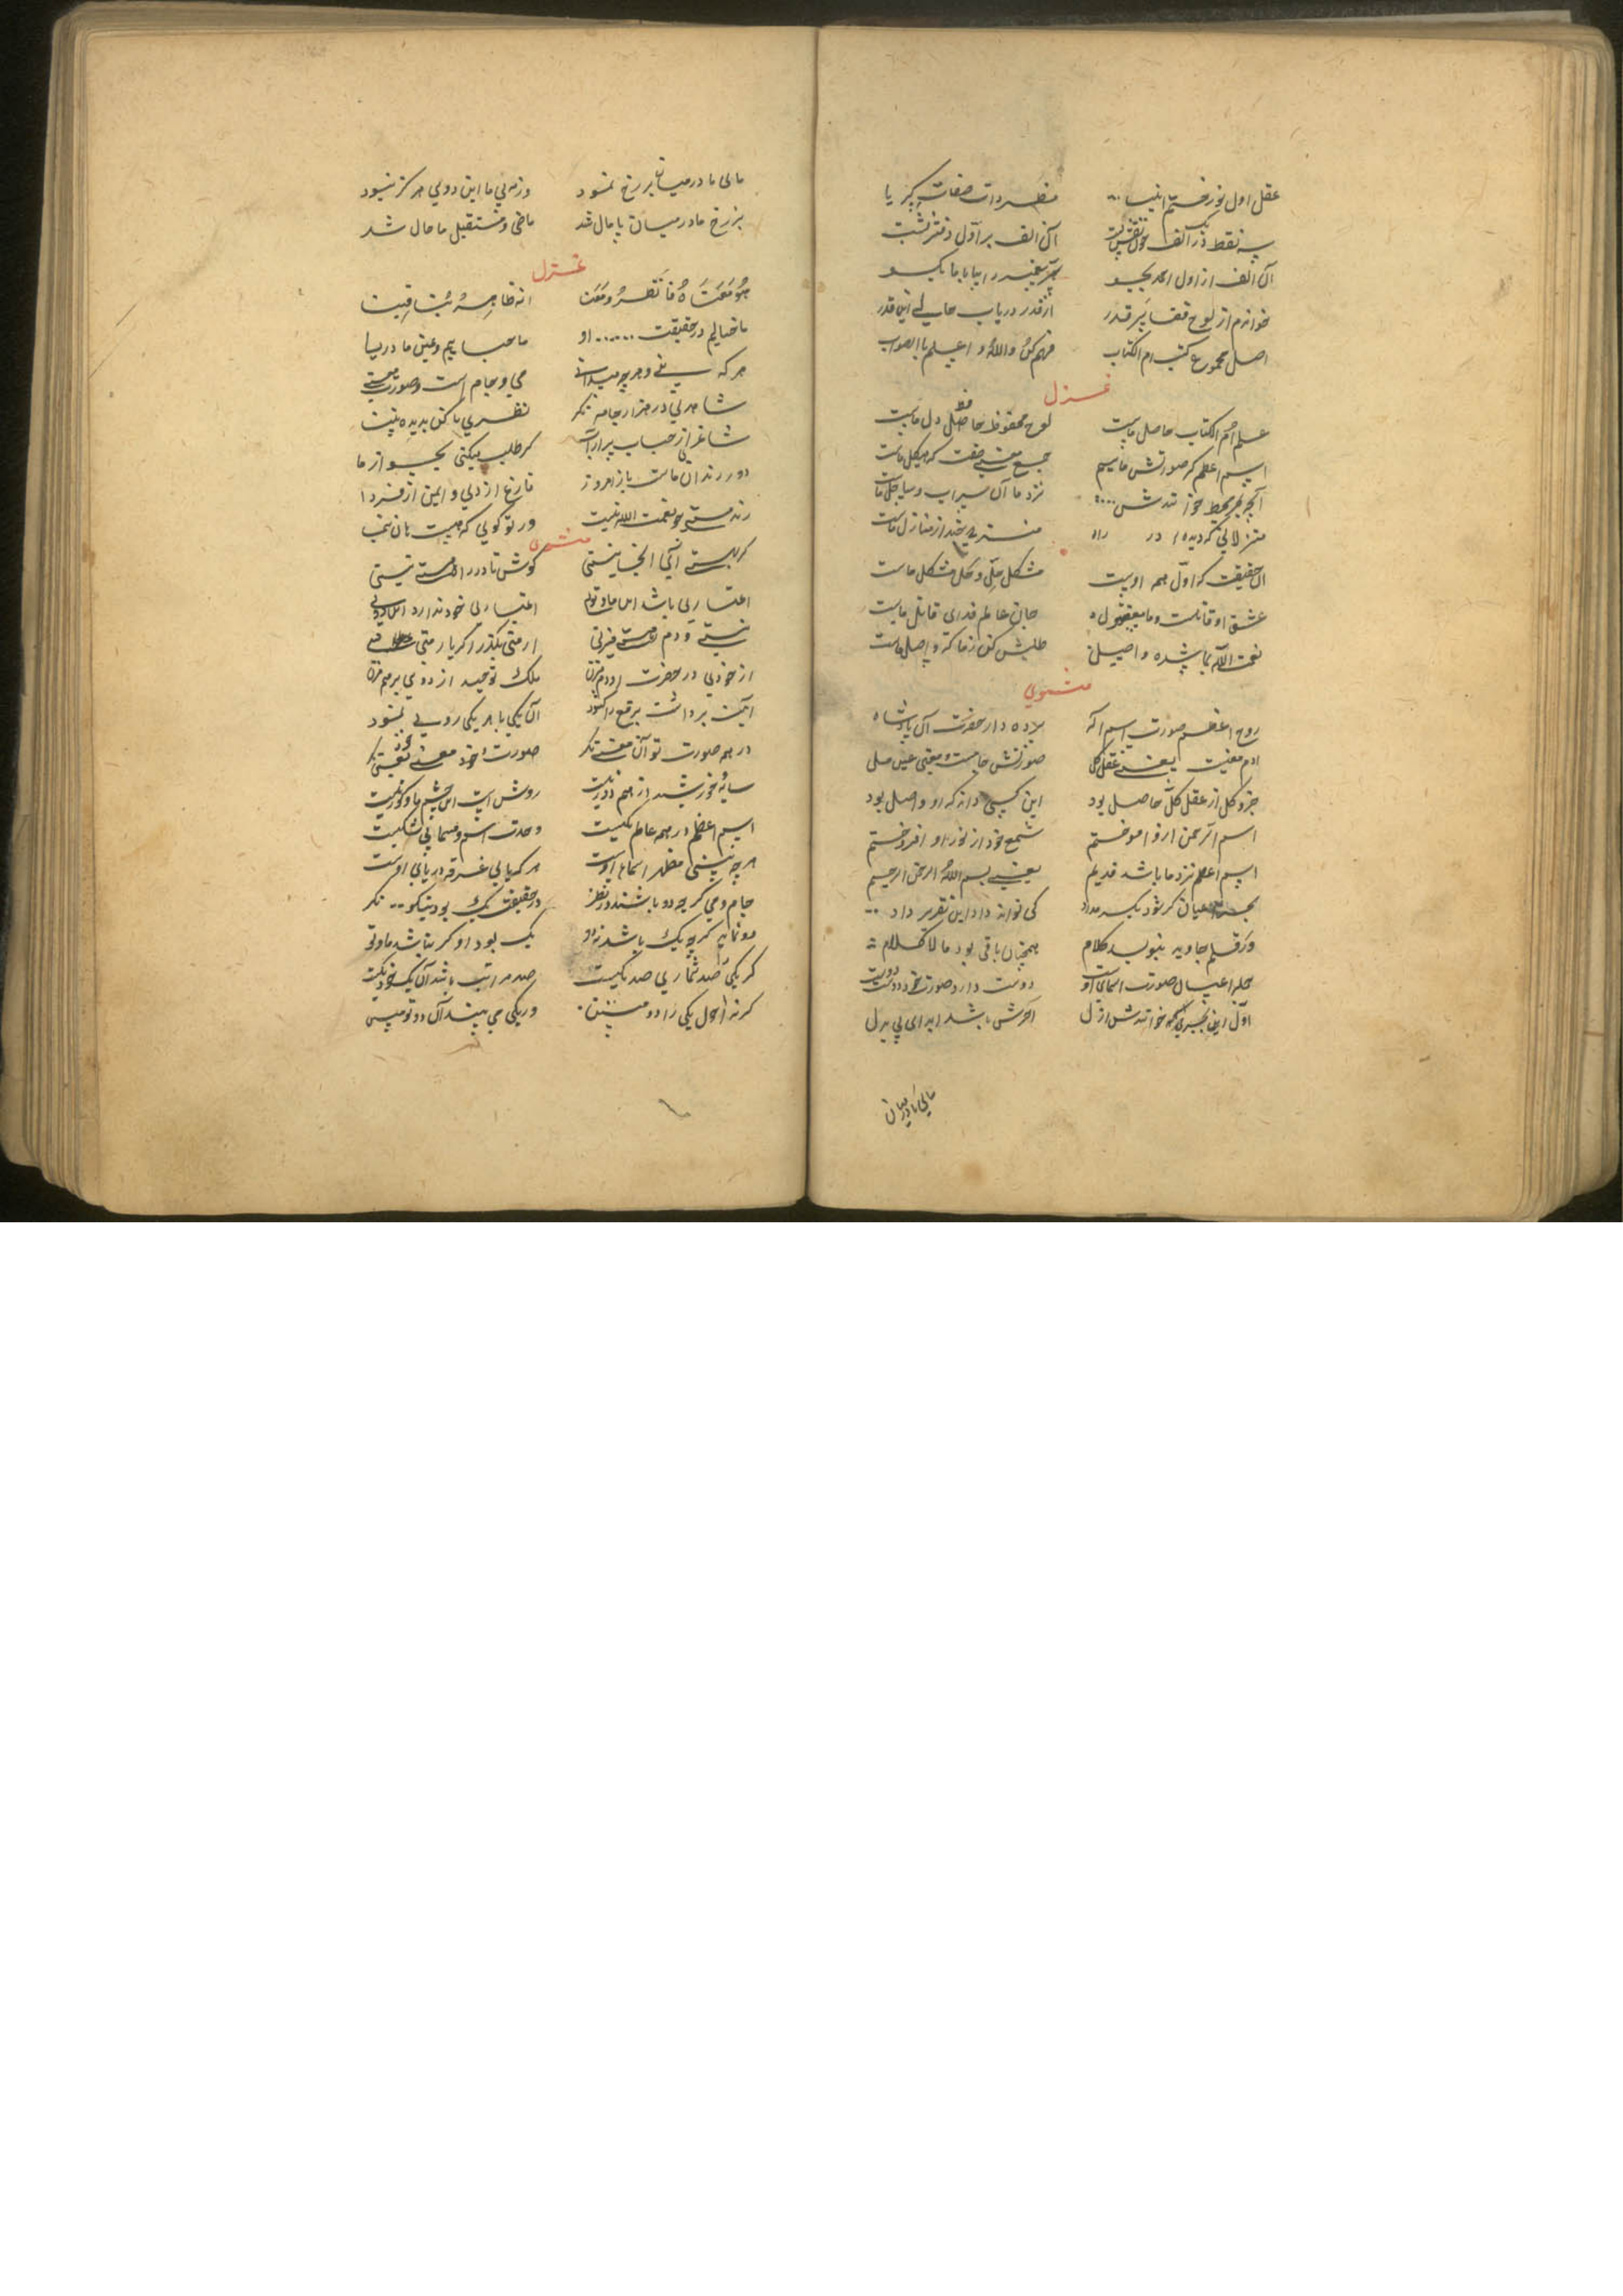 عقل اول نور ختم انبیا مظهر ذات و صفات کبریا
سه نقطه در الف چون نقش بست آن الف بر اول دفتر نشست
آن الف از اول ابجد بجو سر پیغمبر را بیا با ما بگو
خواندم از لوح قضا سر قدر از قدر دریاب حالی این قدر
اصل مجموع کتب ام الکتاب فهم کن والله اعلم بالصواب
غزل
علم ام الکتاب حاصل ماست لوح محفوظ حافظ دل ماست
اسم اعظم که صورتش ماییم جمع معنی صفت که هیکل ماست
آنچه بحر محیط خوانندش نزد ما آن سراب و ساحل ماست
منزلاتی که دیدهٔ در راه منزلی چند از منازل ماست
آن حقیقت که اول همه اوست مشکل حل و حل مشکل ماست
عشق او قاتلست و ما مقتول جان عالم فدای قاتل ماست
نعمت الله بما شده واصل طلبش کن ز ما که واصل ماست
مثنوی
روح اعظم صورت اسم اله پرده دار حضرت آن پادشاه
آدم معنیست یعنی عقل کل صورتش جامست و معنی عین مل
جزو کل از عقل کل حاصل بود این کسی داند که او واصل بود
اسم الرحمن ازو آموختم شمع خود از نور او افروختم
اسم اعظم نزد ما باشد قدیم یعنی بسم الله الرحمن الرحیم
بحر عمان گر شود یکسر مداد کی تواند داد این تقریر داد
ور قلم جاوید بنویسد کلام همچنان باقی بود ما لا کلام
جمله اعیان صورت اسمای او دوست دارد صورت خود دوست دوست
اول این بحر کی خوانندش ازل آخرش باشد ابد ای بی بدل
مایی ما در میان
مایی ما در میان برزخ نمود ورنه بی ما این دویی هرگز نبود
برزخ ما در میان پامال شد ماضی و مستقبل ما حال شد
غزل
هو معنا فانظروه و معنا انه ظاهر بنا فینا
ما خیالیم در حقیقت او ما حبابیم و عین ما دریا
هر که بینی و هر چه میدانی می و جام است و صورت معنی
شاهدی در هزار جامه نگر نظری کن بدیده بینا
ساغری از حباب پر آبست گر طلب میکنی بجو از ما
دور رندان ماست باز امروز فارغ از دی و ایمن از فردا
رند مستی چو نعمت الله نیست ور تو گویی که هست هان بنما
مثنوی
گر هستی آیی اینجا نیستی گوش تا در راه هستی نیستی
اعتباری باشد این ما و تویی اعتباری خود ندارد این دویی
نیستی و دم ز هستی میزنی
از خودی در حضرت او دم مزن ملک توحید از دویی بر هم مزن
آینه برداشت برقع را گشود آن یکی با هر یکی رویی نمود
در همه صورت تو آن معنی نگر صورت خود معنی خود نگر
سایهٔ خورشید از هم دور نیست روشن است این چشم ما و کور نیست
اسم اعظم در همه عالم یکیست وحدت اسم و مسما بی شکیست
هر چه بینی مظهر اسمای اوست هر که یابی غرقه دریای اوست
جام و می گرچه دو باشد در نظر در حقیقت یک بود نیکو نگر
دو نماید گرچه یک باشد نه دو یک بود او گر نباشد ما و تو
گر یکی صد شماری صد یکیست صد مراتب باشد آن یک خود یکیست
گرنه احول یکی را دو مبین ور یکی می بیند آن دو تو مبین